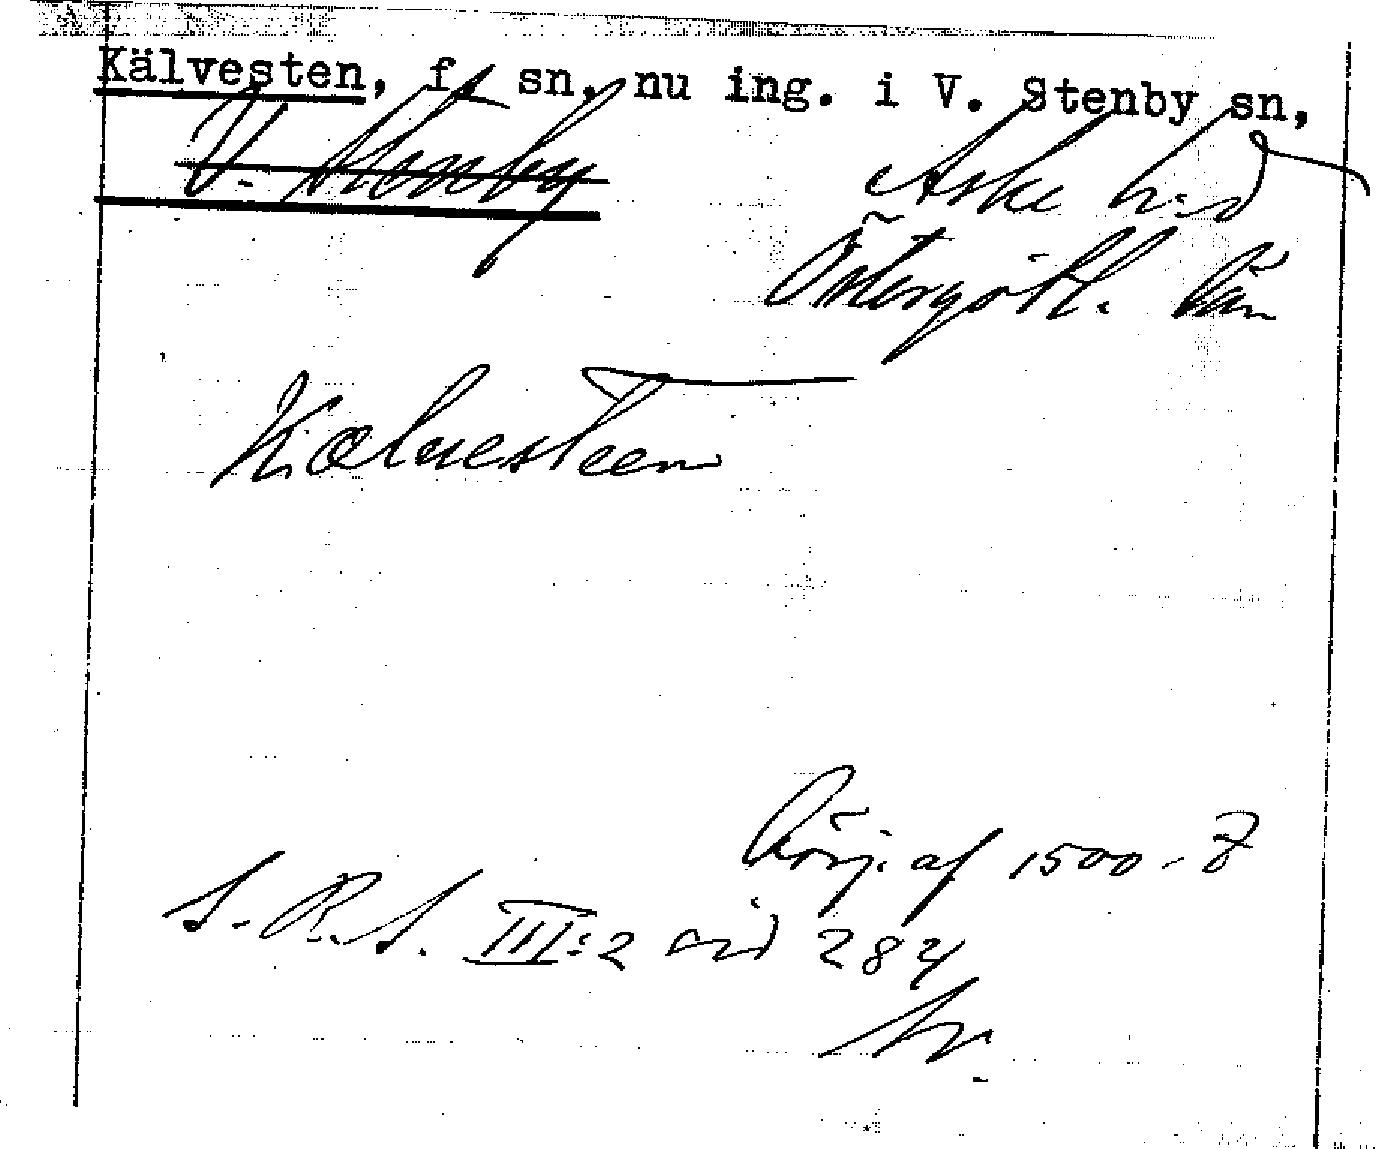 Kälvesten, f. sn, nu ing. i V. Stenby sn,
V. Stenby Aska h:d
Östergötl. län
Kæluesteen
börj. af 1500-t
S.R.S. III:2 sid 284